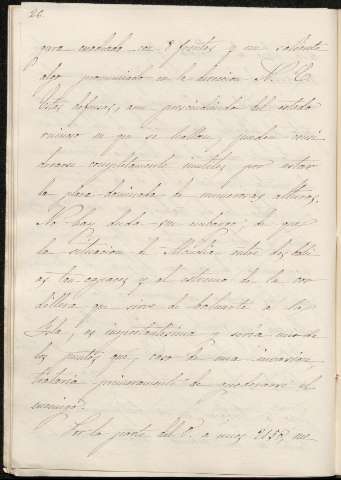 26.
gura cuadrada con 8 frentes y un saliente
algo pronunciado en la direccion N. E.
Estas defensas, aun prescindiendo del estado
ruinoso en que se hallan, pueden consi
derarse completamente inutiles por estar
la plaza dominada de numerosas alturas.
No hay duda sin embargo, de que
la situacion de entre los
tan capaces y al estremo de la cor
dillera que sirve de baluarte á la
Isla, es importantisima y seria uno de
los puntos que, caso de una invasion,
trataria primeramente de apoderarse el
enemigo.
Por la parte del O. á unos